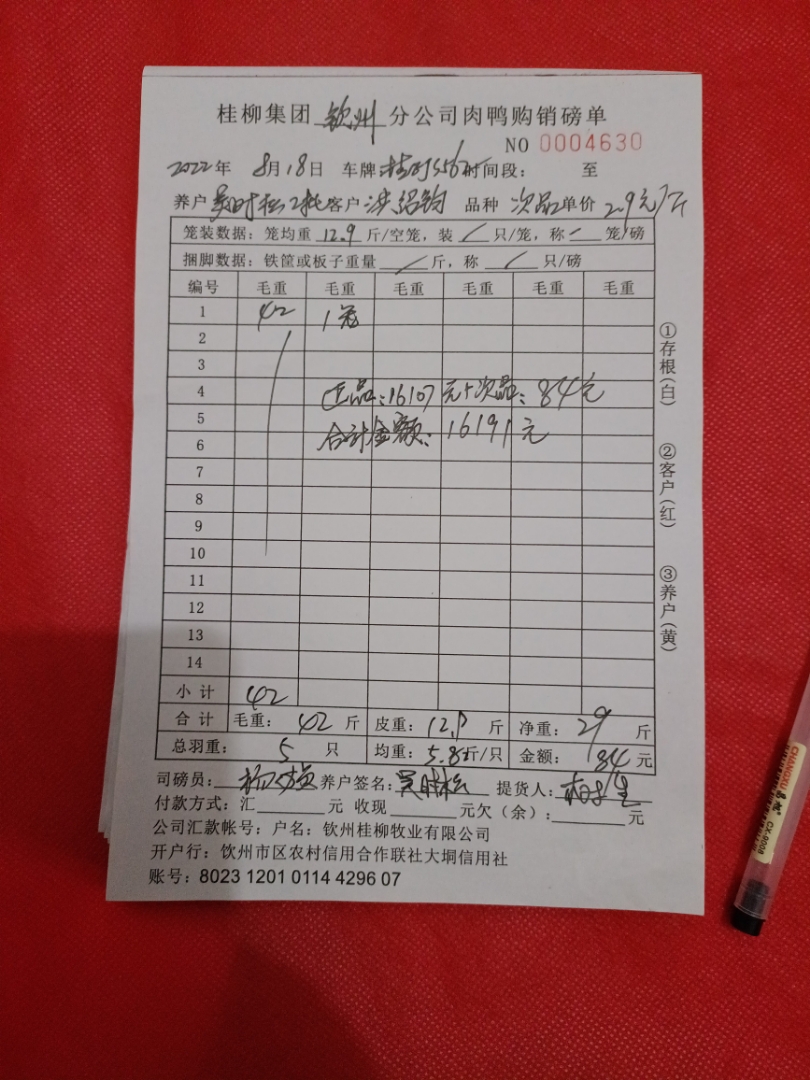 桂柳集团 钦州 分公司肉鸭购销磅单
NO 0004630
2022年 8月18日 车牌 时间段: 至
养户 客户 品种 次品 单价 2.9元/斤
笼装数据:笼均重 12.9 斤/空笼,装 / 只/笼,称 笼/磅
捆脚数据:铁筐或板子重量 / 斤,称 / 只/磅
编号 毛重 毛重 毛重 毛重 毛重 毛重
1 42 1笼
2
3
4 正品:16107元+次品:84元
5 合计金额:16191元
6
7
8
9
10
11
12
13
14
小计 42
合计 毛重: 42 斤 皮重: 12.9 斤 净重: 29 斤
总羽重: 5 只 均重: 5.8斤/只 金额: 84 元
司磅员: 养户签名: 提货人:
付款方式:汇 元 收现 元欠(余): 元
公司汇款帐号:户名:钦州桂柳牧业有限公司
开户行:钦州市区农村信用合作联社大垌信用社
账号:8023 1201 0114 4296 07
①存根(白)
②客户(红)
③养户(黄)
CHANGXU
CX-9008